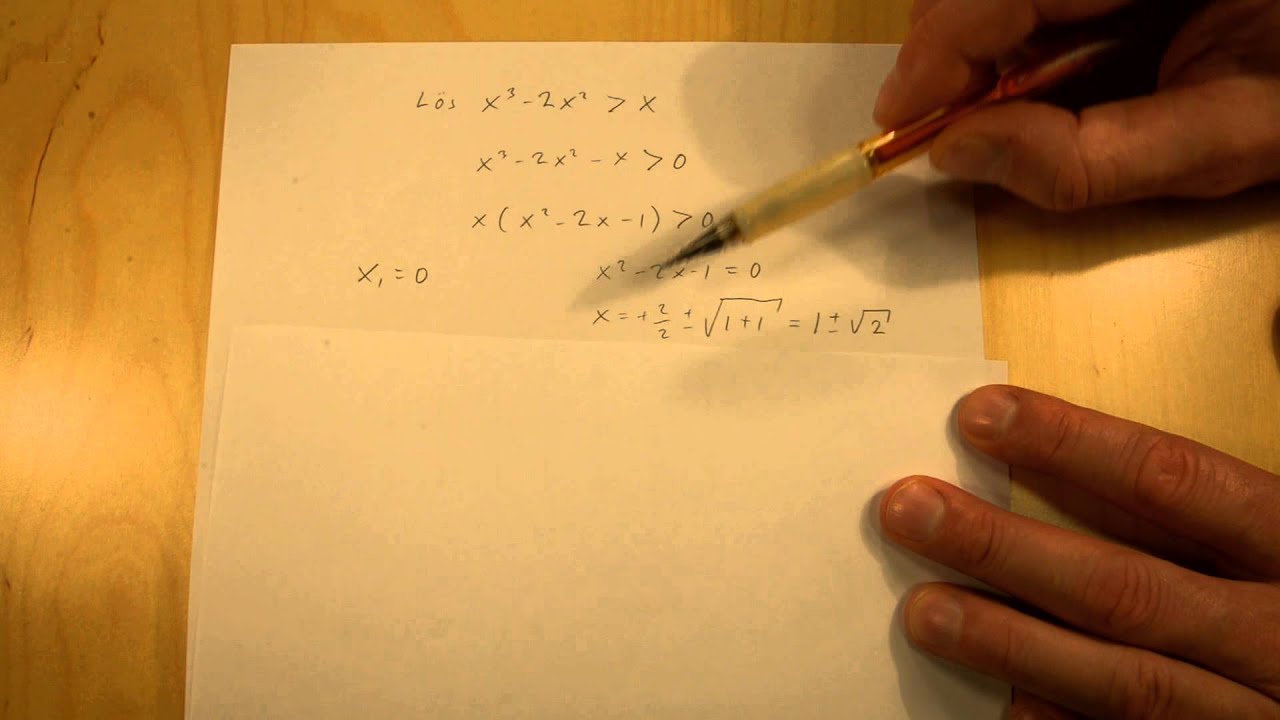 Lös x³-2x² > x
x³-2x²-x>0
x(x²-2x-1)>0
x₁=0 x²-2x-1=0
x=+2/2±√(1+1)=1±√2